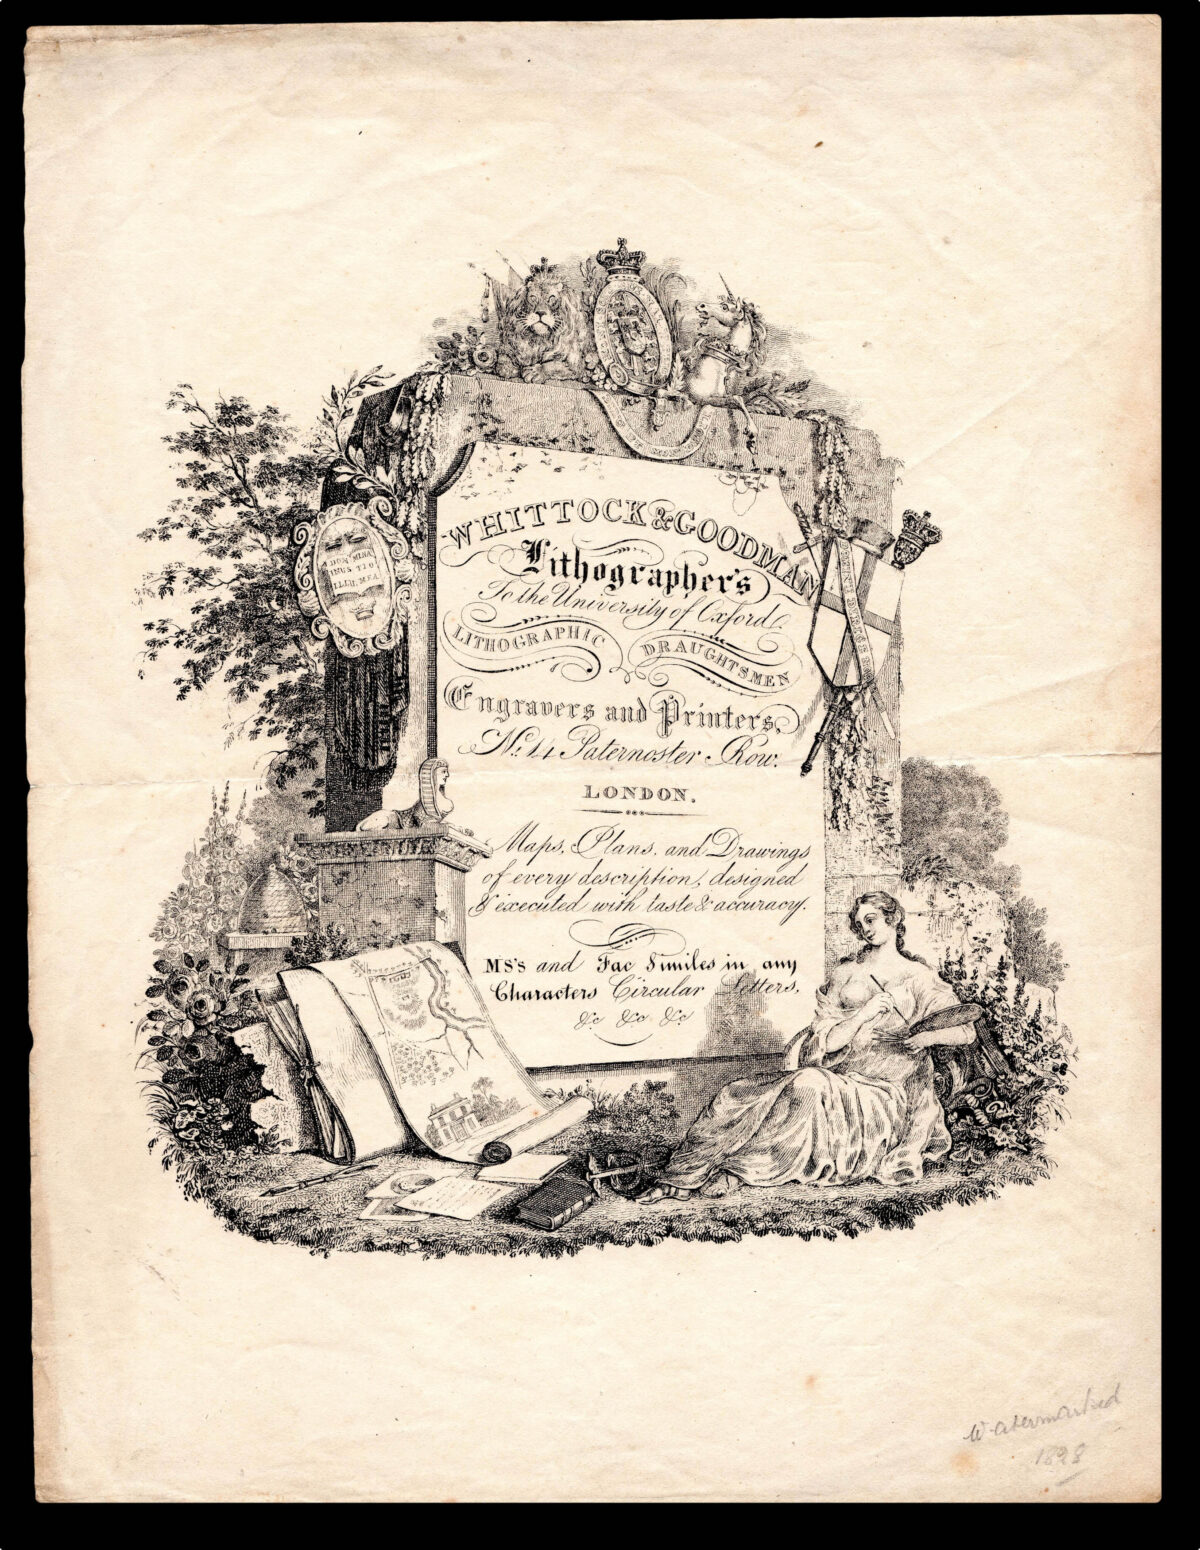 WHITTOCK & GOODMAN
Lithographer's
To the University of Oxford.
LITHOGRAPHIC DRAUGHTSMEN
Engravers and Printers,
No. 14 Paternoster Row.
LONDON.
Maps, Plans, and Drawings
of every description, designed
& executed with taste & accuracy.
MS's and Fac Similes in any
Characters Circular Letters,
&c &c &c
DOMI MINA
NUS TIO
ILLU MEA
Watermarked